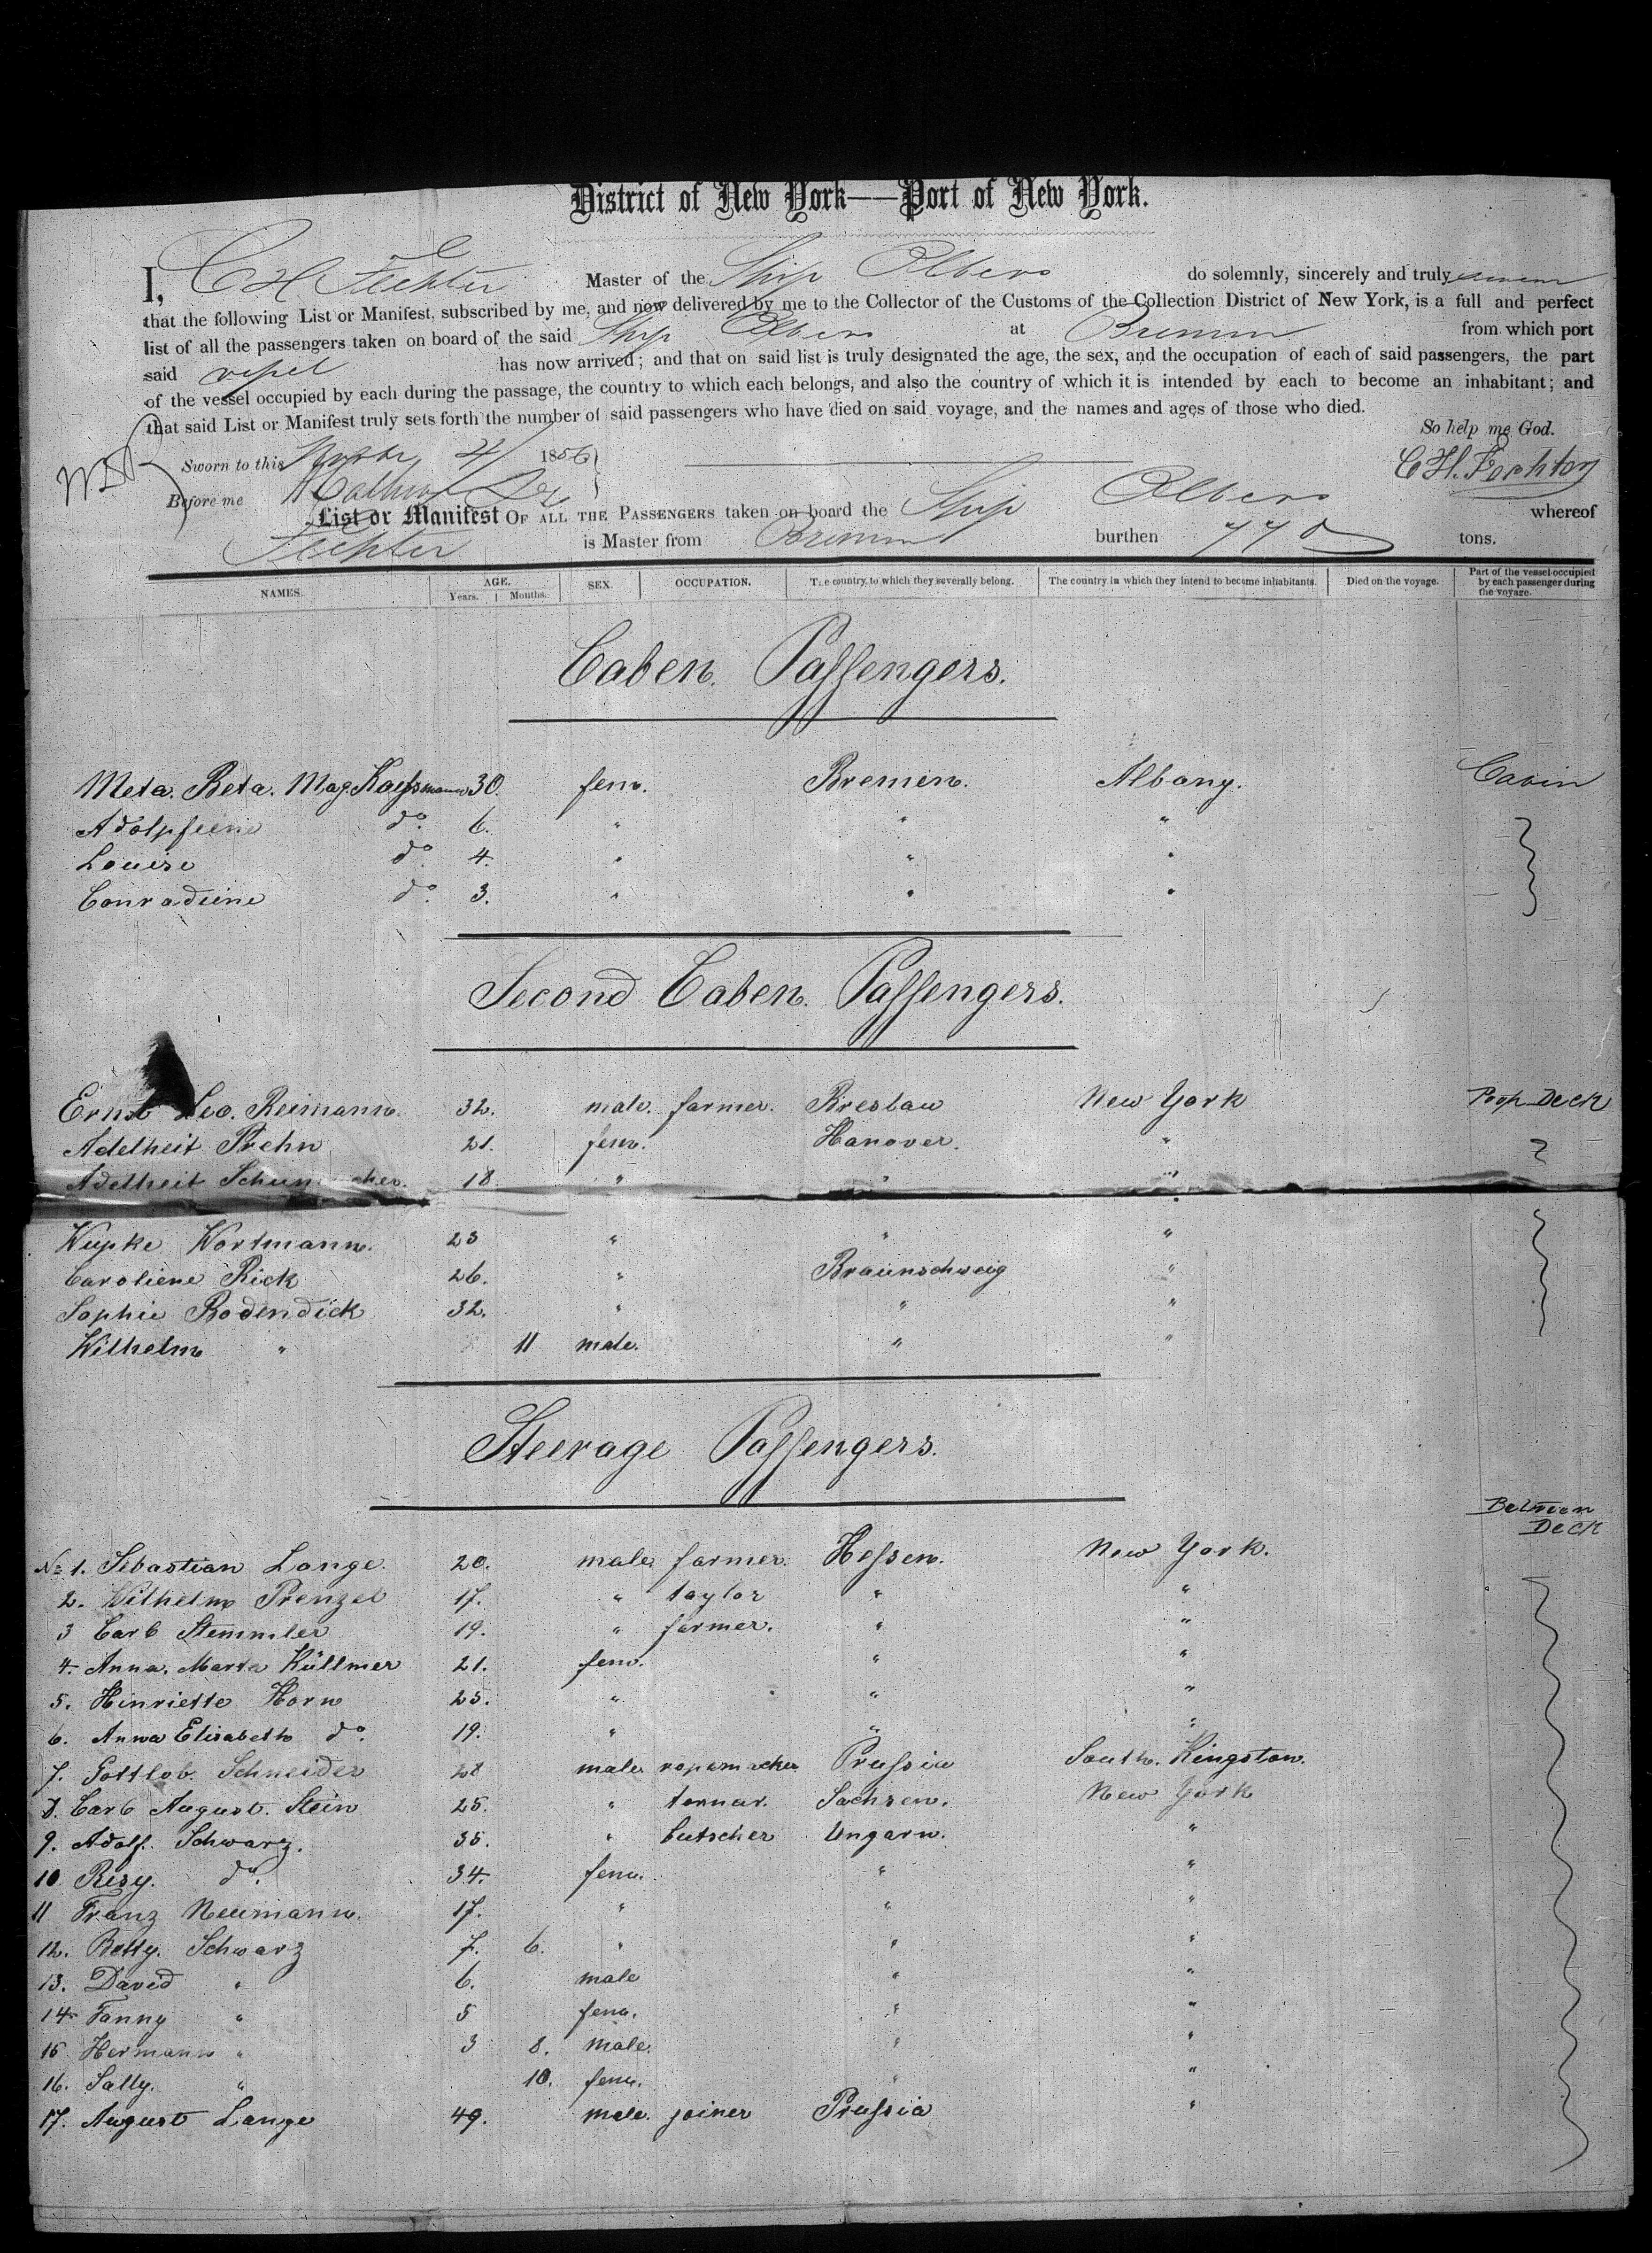 District of New York——Port of New York.
I, C H Fechter Master of the Ship Olbers do solemnly, sincerely and truly swear
that the following List or Manifest, subscribed by me, and now delivered by me to the Collector of the Customs of the Collection District of New York, is a full and perfect
list of all the passengers taken on board of the said Ship Olbers at Bremen from which port
said vessel has now arrived; and that on said list is truly designated the age, the sex, and the occupation of each of said passengers, the part
of the vessel occupied by each during the passage, the country to which each belongs, and also the country of which it is intended by each to become an inhabitant; and
that said List or Manifest truly sets forth the number of said passengers who have died on said voyage, and the names and ages of those who died.
So help me God.
Sworn to this 4 1856
C H. Fechter
Before me
List or Manifest OF ALL THE PASSENGERS taken on board the Ship Olbers whereof
Fechter is Master from Bremen burthen 770 tons.
NAMES. AGE. Years. Months. SEX. OCCUPATION. The country to which they severally belong. The country in which they intend to become inhabitants. Died on the voyage. Part of the vessel occupied by each passenger during the voyage.
Caben. Passengers.
Meta. Beta. Mag. Kaessmann 30. fem. Bremen. Albany. Cabin
Adolpfiene do. 6. " " "
Louise do. 4. " " "
Conradiene do. 3. " " "
Second Caben. Passengers.
Ernst Leo. Reimann. 32. male. farmer. Breslau New York Poop Deck
Adelheit Prehn 21. fem. Hanover. "
Adelheit 18 " " "
Wupke Wortmann. 23 " " "
Caroliene Rick 26. " Braunschweig "
Sophie Bodendick 32. " " "
Wilhelm " 11 male. " "
Steerage Passengers.
Between Deck
No 1. Sebastian Lange. 20. male. farmer. Hessen. New York.
2. Wilhelm Prenzel 17. " taylor " "
3 Carl Stemmler 19. " farmer. " "
4. Anna. Marta Küllmer 21. fem. " "
5. Hinriette Horn 25. " " "
6. Anna Elisabeth do. 19. " " "
7. Gottlob. Schneider 28 male ropemacher Prussia South. Kingston.
8. Carl August. Stein 25. " tornar. Sachsen. New York
9. Adolf. Schwarz. 35. " butscher Ungarn. "
10 Resy. do. 34. fem. " "
11 Franz Neumann. 17. " " "
12. Betty. Schwarz 7. 6. " " "
13. David " 6. male " "
14 Fanny " 5 fem. " "
15 Hermann " 3 8. male. " "
16. Sally. " 10. fem. " "
17. August Lange 49. male. joiner Prussia "